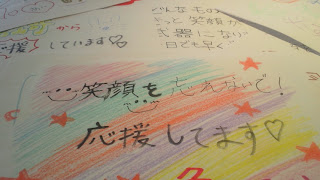 から
応援しています♡
どんなもの
きっと笑顔が
武器になる
一日でも早く
笑顔を忘れないで!
応援してます♡